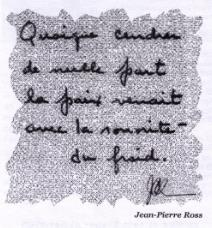 Quoique cendres
de nulle part
la paix venait
avec la
du froid.
Jean-Pierre Ross